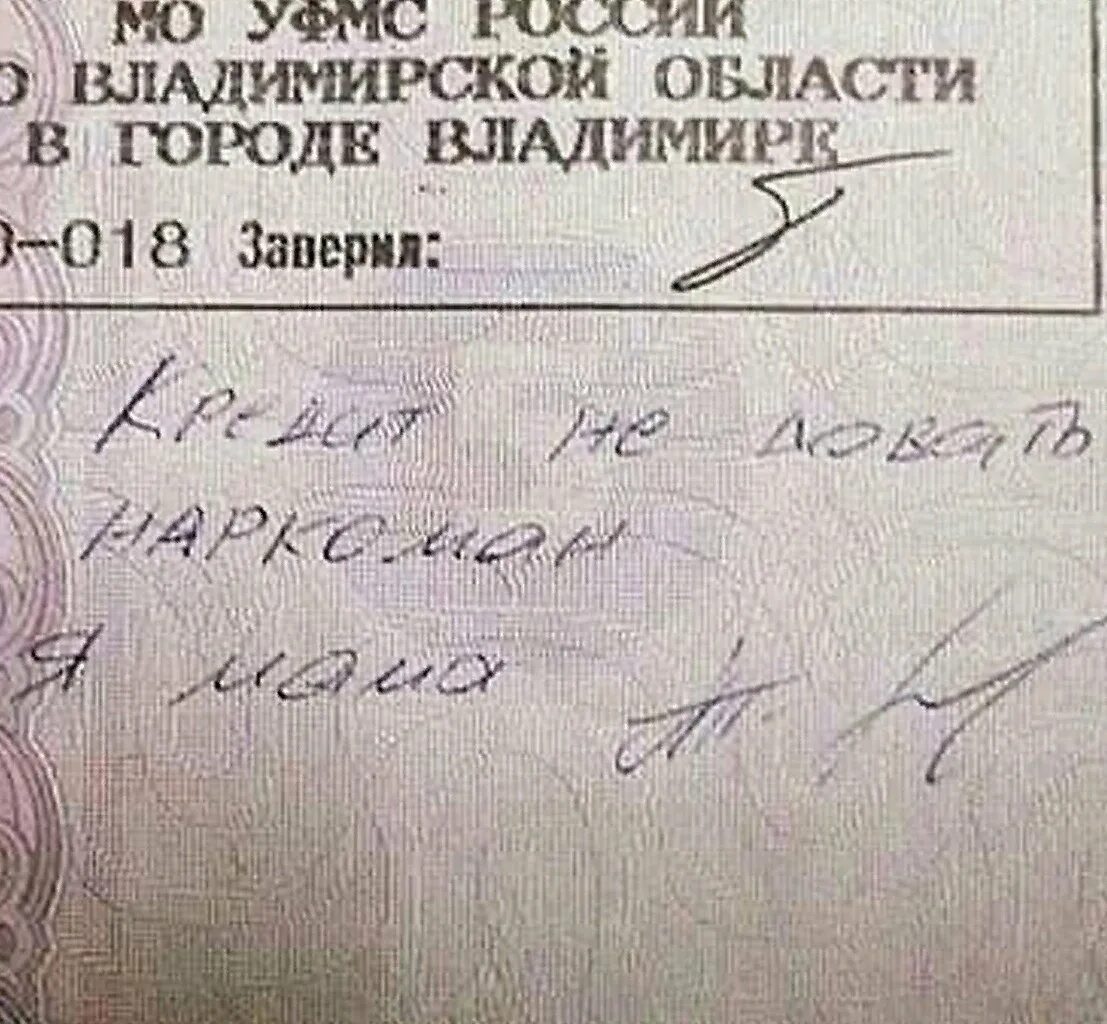 МО УФМС РОССИИ
О ВЛАДИМИРСКОЙ ОБЛАСТИ
В ГОРОДЕ ВЛАДИМИРЕ
0-018 Заверил:
Кредит не довать
наркоман
Я мама